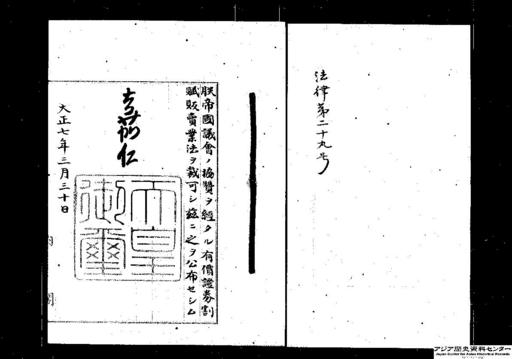 法律第二十九号
朕帝國議會ノ協賛ヲ經タル有價證券割
賦販賣業法ヲ裁可シ玆ニ之ヲ公布セシム
嘉仁
天皇御璽
大正七年三月三十日
内閣
アジア歴史資料センター
Japan Center for Asian Historical Records